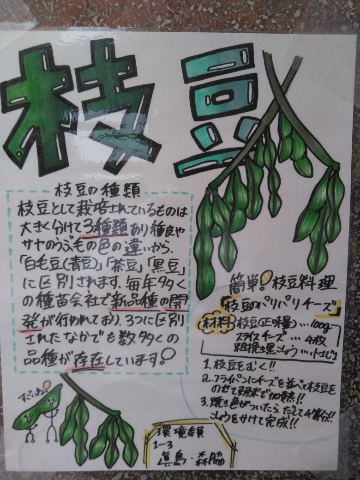 枝豆
枝豆の種類
枝豆として栽培されているものは
大きく分けて3種類あり種皮や
サヤのうぶ毛の色の違いから、
「白毛豆(青豆)」「茶豆」「黒豆」
に区別されます。毎年多く
の種苗会社で新品種の開
発が行われており、3つに区別
されたなかでも数多くの
品種が存在しています!
簡単!枝豆料理
「枝豆のパリパリチーズ」
材料 枝豆(正味量)…100g
スライスチーズ…4枚
粗挽き黒こしょう…小さじ1
1.枝豆をむく!!
2.フライパンにチーズを並べ枝豆を
のせて弱火で加熱!!
3.焼き色がついたら
をかけて完成!!
だいず
環境緑
1-3
眞島・森脇